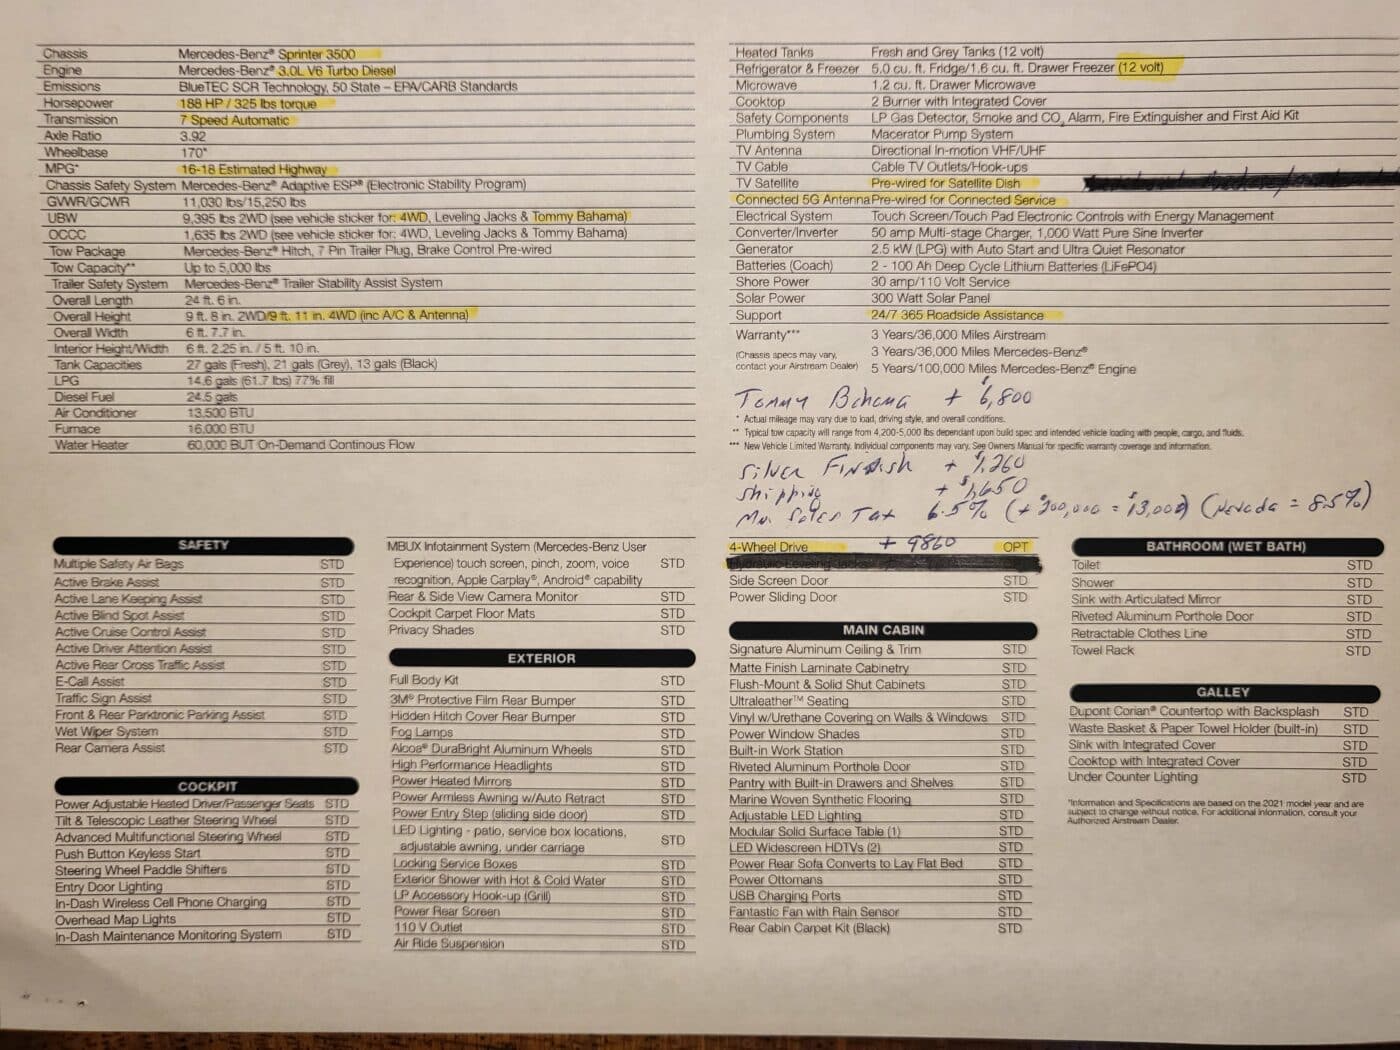 Chassis Mercedes-Benz® Sprinter 3500
Engine Mercedes-Benz® 3.0L V6 Turbo Diesel
Emissions BlueTEC SCR Technology, 50 State – EPA/CARB Standards
Horsepower 188 HP / 325 lbs torque
Transmission 7 Speed Automatic
Axle Ratio 3.92
Wheelbase 170"
MPG* 16-18 Estimated Highway
Chassis Safety System Mercedes-Benz® Adaptive ESP® (Electronic Stability Program)
GVWR/GCWR 11,030 lbs/15,250 lbs
UBW 9,395 lbs 2WD (see vehicle sticker for: 4WD, Leveling Jacks & Tommy Bahama)
OCCC 1,635 lbs 2WD (see vehicle sticker for: 4WD, Leveling Jacks & Tommy Bahama)
Tow Package Mercedes-Benz® Hitch, 7 Pin Trailer Plug, Brake Control Pre-wired
Tow Capacity** Up to 5,000 lbs
Trailer Safety System Mercedes-Benz® Trailer Stability Assist System
Overall Length 24 ft. 6 in.
Overall Height 9 ft. 8 in. 2WD/9 ft. 11 in. 4WD (inc A/C & Antenna)
Overall Width 6 ft. 7.7 in.
Interior Height/Width 6 ft. 2.25 in. / 5 ft. 10 in.
Tank Capacities 27 gals (Fresh), 21 gals (Grey), 13 gals (Black)
LPG 14.6 gals (61.7 lbs) 77% fill
Diesel Fuel 24.5 gals
Air Conditioner 13,500 BTU
Furnace 16,000 BTU
Water Heater 60,000 BUT On-Demand Continous Flow
Heated Tanks Fresh and Grey Tanks (12 volt)
Refrigerator & Freezer 5.0 cu. ft. Fridge/1.6 cu. ft. Drawer Freezer (12 volt)
Microwave 1.2 cu. ft. Drawer Microwave
Cooktop 2 Burner with Integrated Cover
Safety Components LP Gas Detector, Smoke and CO2 Alarm, Fire Extinguisher and First Aid Kit
Plumbing System Macerator Pump System
TV Antenna Directional In-motion VHF/UHF
TV Cable Cable TV Outlets/Hook-ups
TV Satellite Pre-wired for Satellite Dish
Connected 5G Antenna Pre-wired for Connected Service
Electrical System Touch Screen/Touch Pad Electronic Controls with Energy Management
Converter/Inverter 50 amp Multi-stage Charger, 1,000 Watt Pure Sine Inverter
Generator 2.5 kW (LPG) with Auto Start and Ultra Quiet Resonator
Batteries (Coach) 2 - 100 Ah Deep Cycle Lithium Batteries (LiFePO4)
Shore Power 30 amp/110 Volt Service
Solar Power 300 Watt Solar Panel
Support 24/7 365 Roadside Assistance
Warranty*** 3 Years/36,000 Miles Airstream
(Chassis specs may vary, 3 Years/36,000 Miles Mercedes-Benz®
contact your Airstream Dealer) 5 Years/100,000 Miles Mercedes-Benz® Engine
Tommy Bahama + $6,800
* Actual mileage may vary due to load, driving style, and overall conditions.
** Typical tow capacity will range from 4,200-5,000 lbs dependant upon build spec and intended vehicle loading with people, cargo, and fluids.
*** New Vehicle Limited Warranty. Individual components may vary. See Owners Manual for specific warranty coverage and information.
Silver Finish + $1,260
Shipping + $1,650
Mn. Sales Tax 6.5% (+ $200,000 = $13,000) (Nevada = 8.5%)
SAFETY
Multiple Safety Air Bags STD
Active Brake Assist STD
Active Lane Keeping Assist STD
Active Blind Spot Assist STD
Active Cruise Control Assist STD
Active Driver Attention Assist STD
Active Rear Cross Traffic Assist STD
E-Call Assist STD
Traffic Sign Assist STD
Front & Rear Parktronic Parking Assist STD
Wet Wiper System STD
Rear Camera Assist STD
COCKPIT
Power Adjustable Heated Driver/Passenger Seats STD
Tilt & Telescopic Leather Steering Wheel STD
Advanced Multifunctional Steering Wheel STD
Push Button Keyless Start STD
Steering Wheel Paddle Shifters STD
Entry Door Lighting STD
In-Dash Wireless Cell Phone Charging STD
Overhead Map Lights STD
In-Dash Maintenance Monitoring System STD
MBUX Infotainment System (Mercedes-Benz User
Experience) touch screen, pinch, zoom, voice STD
recognition, Apple Carplay®, Android® capability
Rear & Side View Camera Monitor STD
Cockpit Carpet Floor Mats STD
Privacy Shades STD
EXTERIOR
Full Body Kit STD
3M® Protective Film Rear Bumper STD
Hidden Hitch Cover Rear Bumper STD
Fog Lamps STD
Alcoa® DuraBright Aluminum Wheels STD
High Performance Headlights STD
Power Heated Mirrors STD
Power Armless Awning w/Auto Retract STD
Power Entry Step (sliding side door) STD
LED Lighting - patio, service box locations, STD
adjustable awning, under carriage
Locking Service Boxes STD
Exterior Shower with Hot & Cold Water STD
LP Accessory Hook-up (Grill) STD
Power Rear Screen STD
110 V Outlet STD
Air Ride Suspension STD
4-Wheel Drive + 9860 OPT
Hydraulic Leveling Jacks
Side Screen Door STD
Power Sliding Door STD
MAIN CABIN
Signature Aluminum Ceiling & Trim STD
Matte Finish Laminate Cabinetry STD
Flush-Mount & Solid Shut Cabinets STD
Ultraleather™ Seating STD
Vinyl w/Urethane Covering on Walls & Windows STD
Power Window Shades STD
Built-in Work Station STD
Riveted Aluminum Porthole Door STD
Pantry with Built-in Drawers and Shelves STD
Marine Woven Synthetic Flooring STD
Adjustable LED Lighting STD
Modular Solid Surface Table (1) STD
LED Widescreen HDTVs (2) STD
Power Rear Sofa Converts to Lay Flat Bed STD
Power Ottomans STD
USB Charging Ports STD
Fantastic Fan with Rain Sensor STD
Rear Cabin Carpet Kit (Black) STD
BATHROOM (WET BATH)
Toilet STD
Shower STD
Sink with Articulated Mirror STD
Riveted Aluminum Porthole Door STD
Retractable Clothes Line STD
Towel Rack STD
GALLEY
Dupont Corian® Countertop with Backsplash STD
Waste Basket & Paper Towel Holder (built-in) STD
Sink with Integrated Cover STD
Cooktop with Integrated Cover STD
Under Counter Lighting STD
*Information and Specifications are based on the 2021 model year and are
subject to change without notice. For additional information, consult your
Authorized Airstream Dealer.